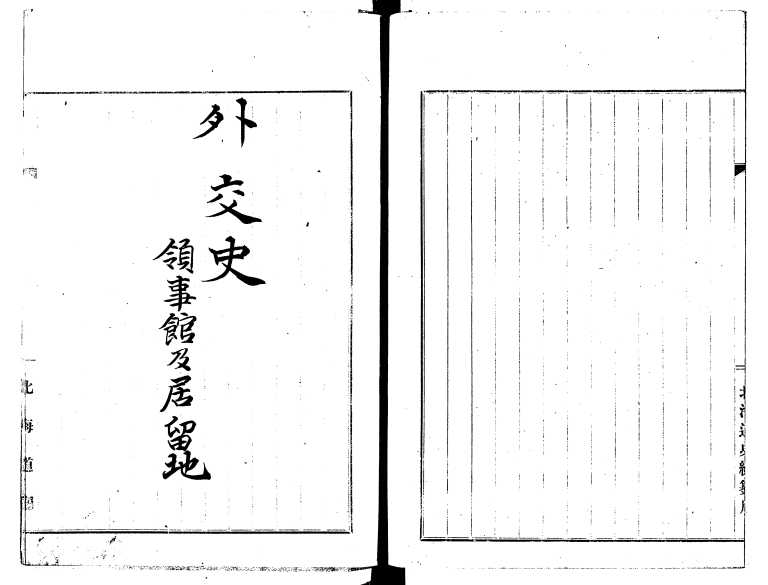 外交史
領事館及居留地
北海道